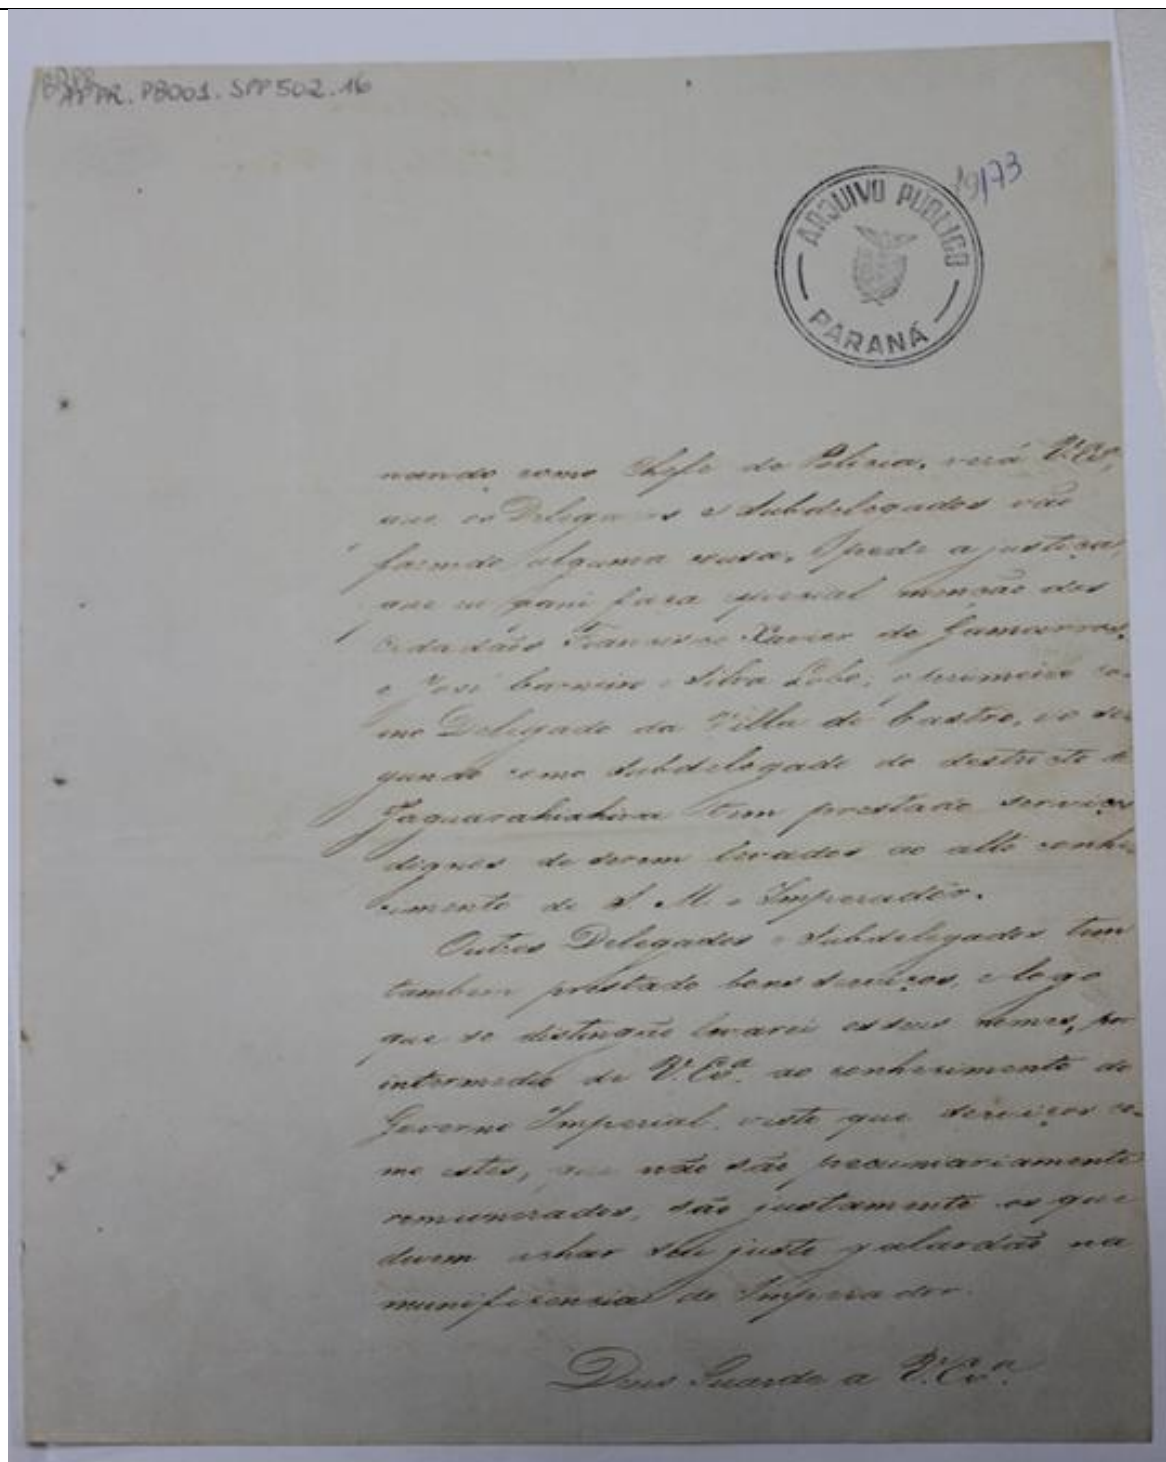 APPR.PB001.SPP502.16
19/73
ARQUIVO PÚBLICO
PARANÁ
nando como Chefe de Policia, verá V. Exª.
que os Delegados e Subdelegados vão
fazendo alguma cousa. E pede a justiça,
que eu faça especial menção dos
cidadãos Francisco Xavier de
e José Carneiro Silva Lobo, o primeiro co-
mo Delegado da Villa de Castro, e o se-
gundo como Subdelegado do destricto de
Jaguarahiahiva tem prestado serviços
dignos de serem levados ao alto conhe-
cimento de S. M. o Imperador.
Outros Delegados e Subdelegados tem
tambem prestado bons serviços, e logo
que se distingão levarei os seus nomes, por
intermedio de V. Exª. ao conhecimento do
Governo Imperial, visto que serviços co-
mo estes, que não são pecuniariamente
remunerados, são justamente os que
devem achar seu justo galardão na
munificencia do Imperador.
Deus Guarde a V. Exª.